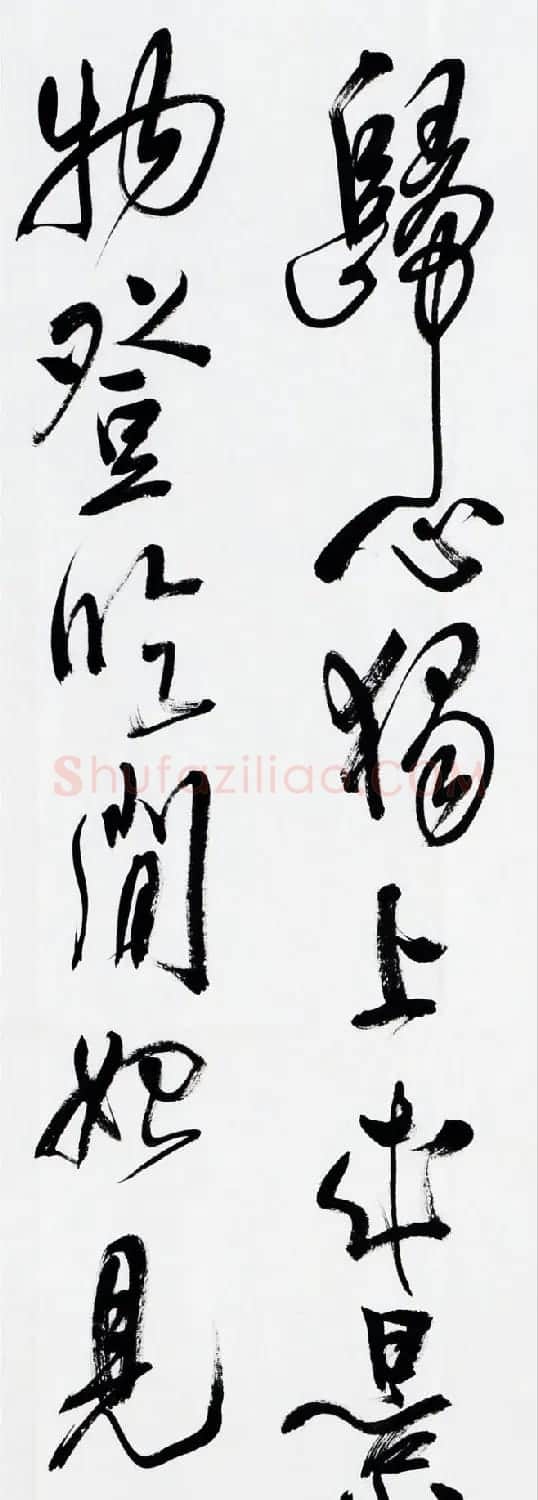 歸心獨上來景
物登臨閒始見
Shufaziliao.COM